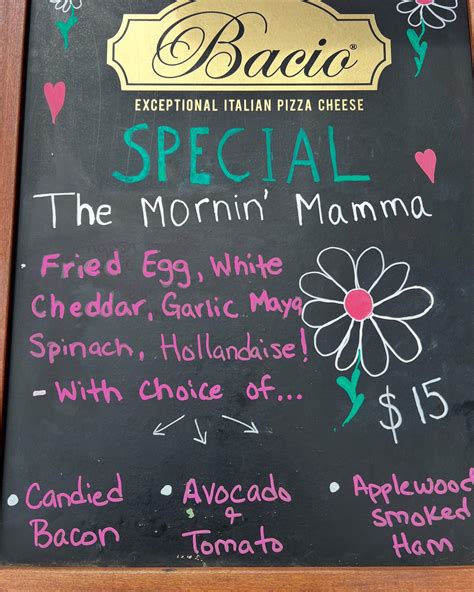 Bacio®
EXCEPTIONAL ITALIAN PIZZA CHEESE
SPECIAL
The Mornin' Mamma
Fried Egg, White
Cheddar, Garlic Mayo
Spinach, Hollandaise!
- With Choice of...
$15
• Candied
Bacon
• Avocado
&
Tomato
• Applewood
Smoked
Ham